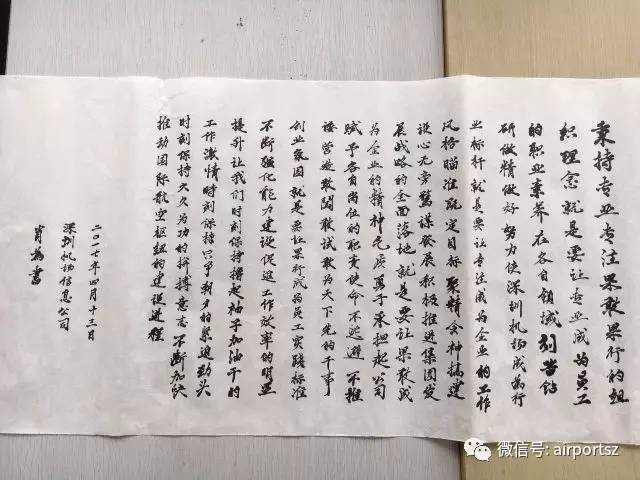 秉持专业专注果敢果行的组
织理念就是要让专业成为员工
的职业素养在各自领域刻苦钻
研做精做好努力使深圳机场成为行
业标杆就是要让专注成为企业的工作
风格瞄准既定目标聚精会神搞建
设心无旁骛谋发展积极推进集团发
展战略的全面落地就是要让果敢成
为企业的精神气质勇于承担起公司
赋予各自岗位的职责使命不逃避不推
诿营造敢闯敢试敢为天下先的干事
创业氛围就是要让果行成为员工实践标准
不断强化能力建设促进工作效率的明显
提升让我们时刻保持撸起袖子加油干的
工作激情时刻保持只争朝夕的紧迫劲头
时刻保持久久为功的拼搏意志不断加快
推动国际航空枢纽的建设进程
二〇一七年四月十三日
深圳机场信息公司
肖 书
微信号: airportsz